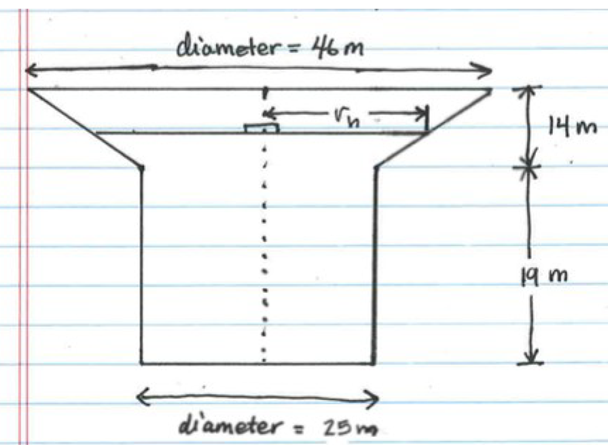 diameter = 46 m
r_h
14 m
19 m
diameter = 25 m